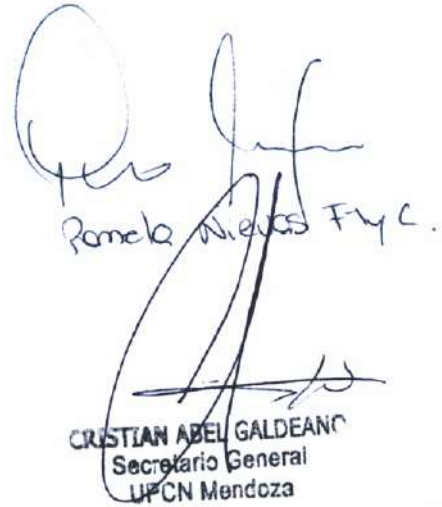 Pamela Nievas F y C.
CRISTIAN ABEL GALDEANO
Secretario General
UPCN Mendoza